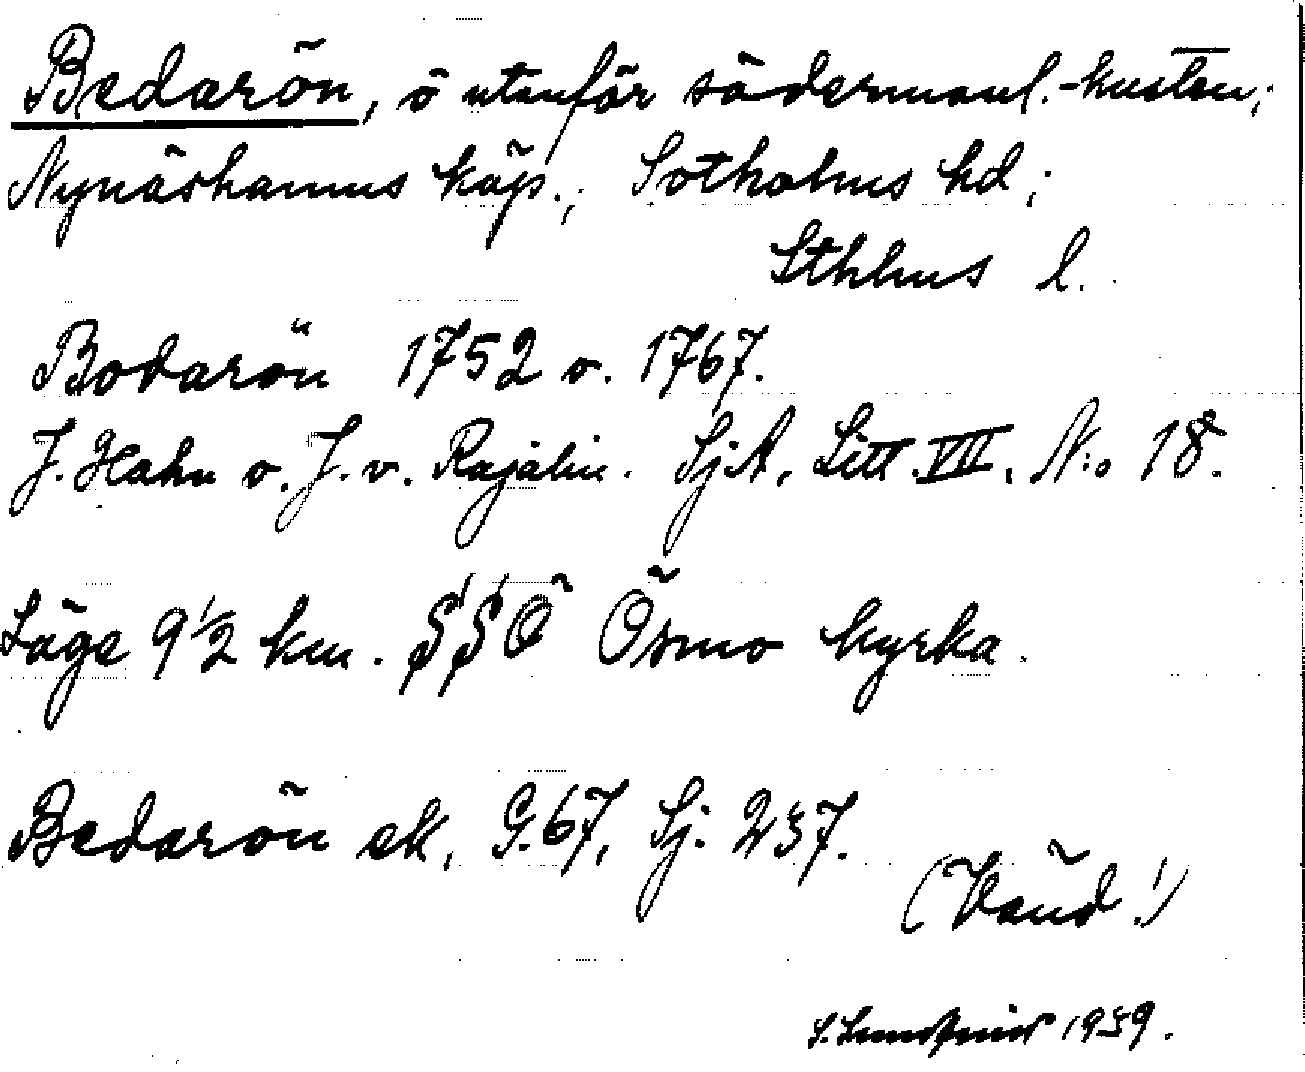 Bedarön, ö utanför södermanl.-kusten;
Nynäshamns köp.; Sotholms hd;
Sthlms l.
Bodarön 1752 o. 1767.
J. Hahn o. J. v. Rajalin. SjA, Litt. VII. N:o 18.
Läge 9 1/2 km. SSO Ösmo kyrka.
Bedarön ek, G. 67, Sj. 237.
(Vänd!)
1939.